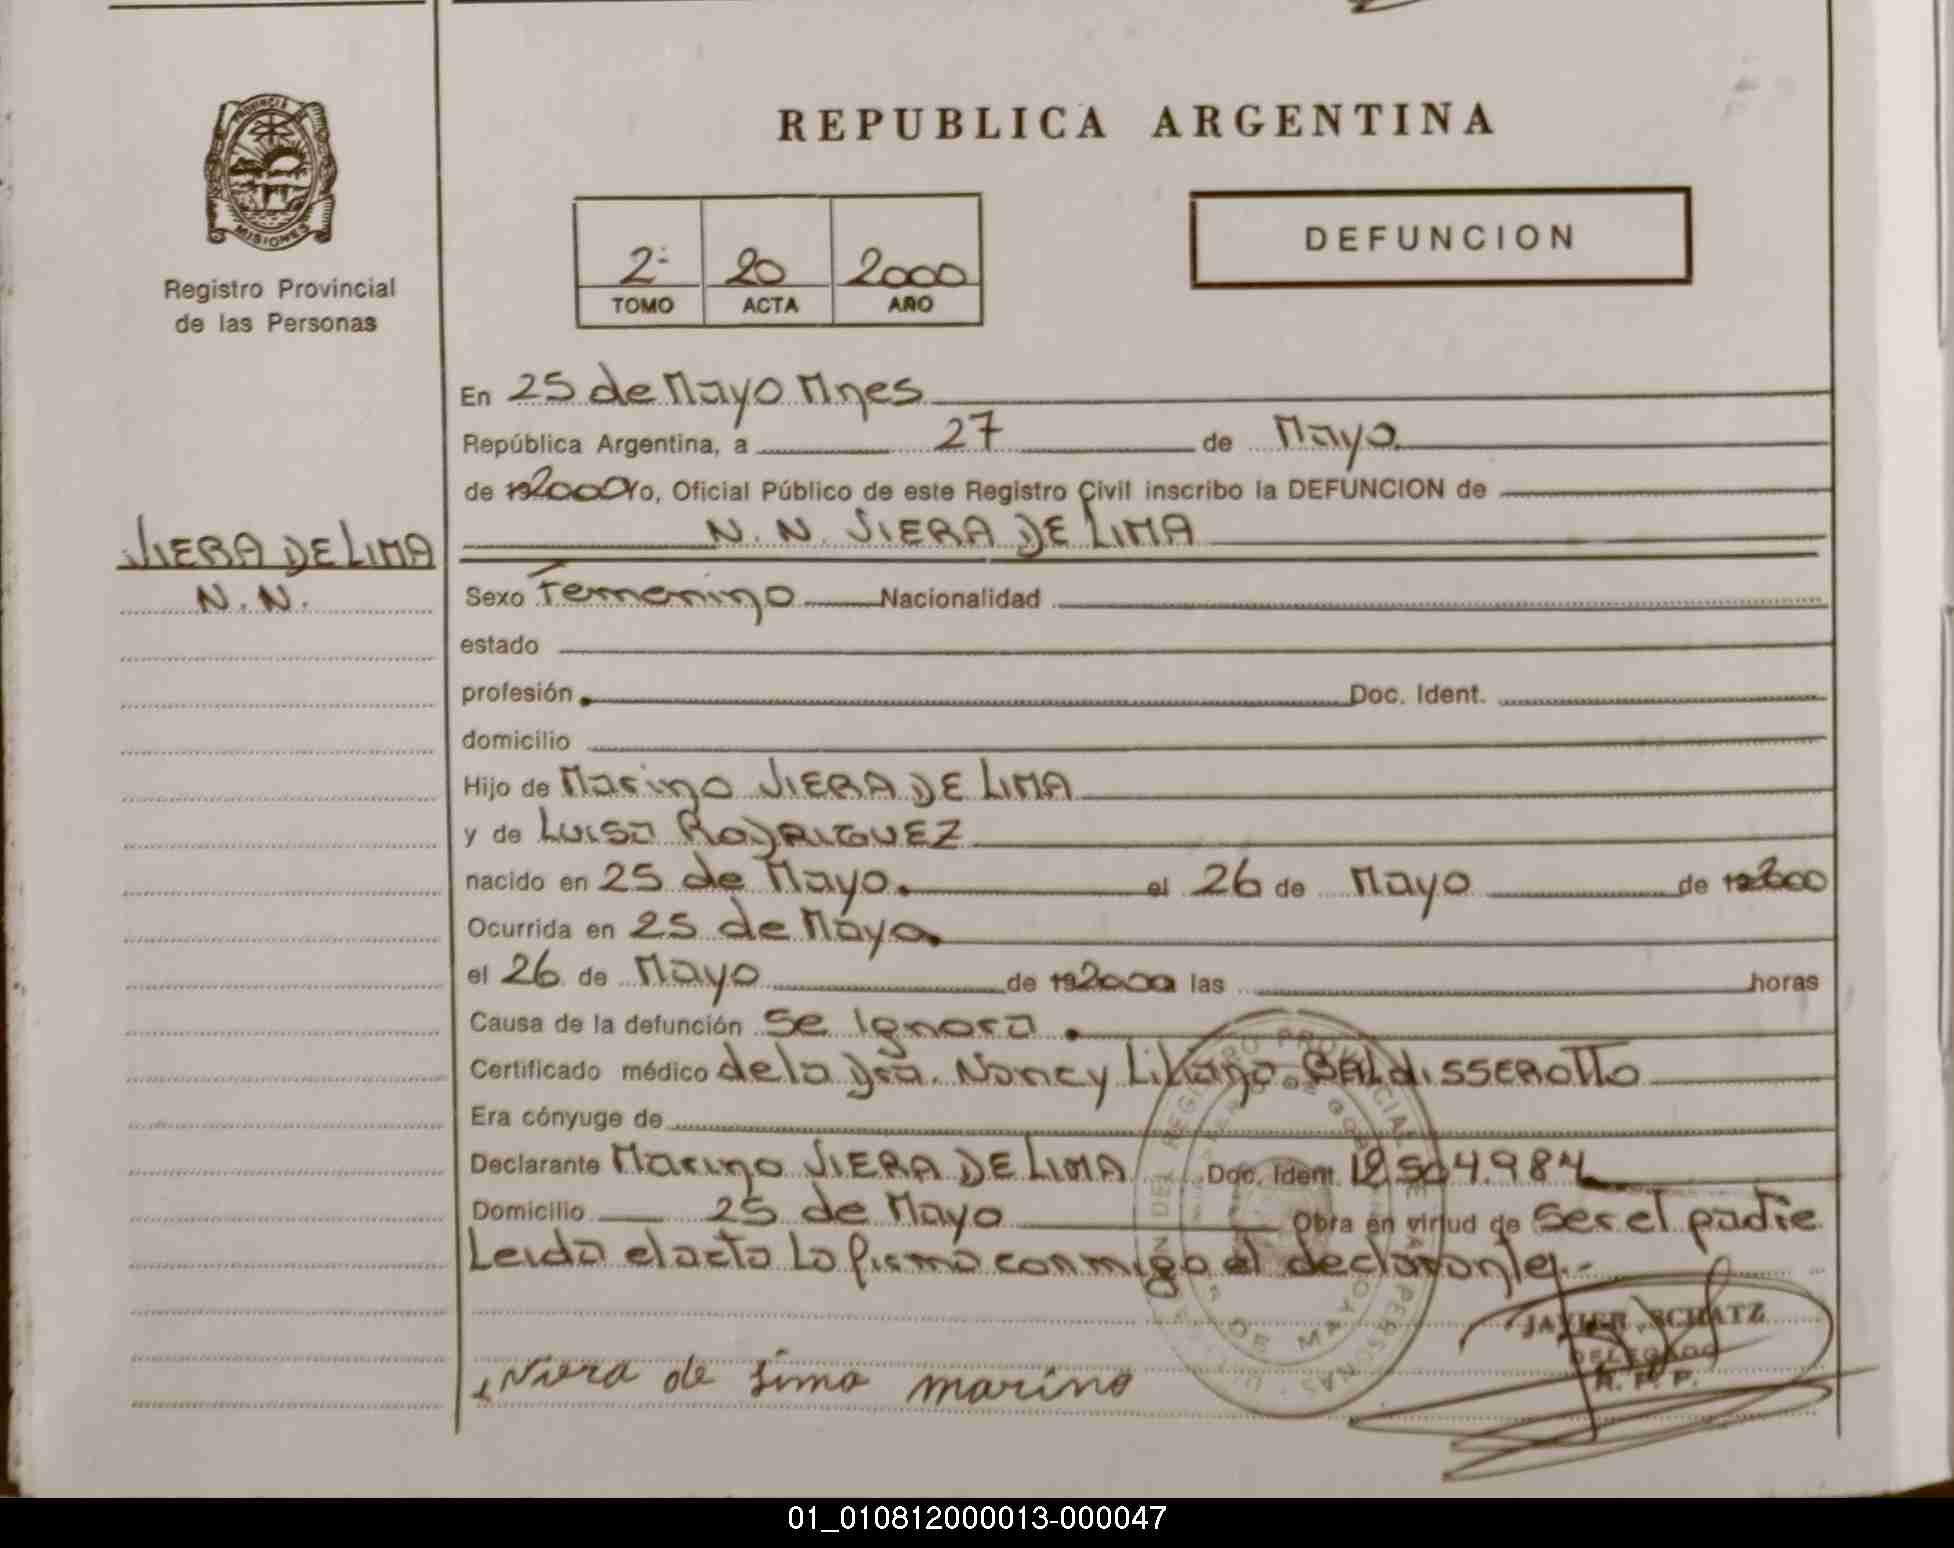 PROVINCIA
MISIONES
Registro Provincial
de las Personas
VIERA DE LIMA
N. N.
REPUBLICA ARGENTINA
2º 20 2000
TOMO ACTA AÑO
DEFUNCION
En 25 de Mayo Mnes
República Argentina, a 27 de Mayo
de 192000 Yo, Oficial Público de este Registro Civil inscribo la DEFUNCION de
N. N. VIERA DE LIMA
Sexo Femenino Nacionalidad
estado
profesión Doc. Ident.
domicilio
Hijo de Marino VIERA DE LIMA
y de Luisa RODRIGUEZ
nacido en 25 de Mayo. el 26 de Mayo de 192000
Ocurrida en 25 de Mayo
el 26 de Mayo de 192000 a las horas
Causa de la defunción se Ignora.
Certificado médico de la Dra. Nancy Liliana BALDISSEROTTO
Era cónyuge de
Declarante Marino VIERA DE LIMA Doc. Ident. 12.504.984
Domicilio 25 de Mayo Obra en virtud de ser el padre
Leida el acta la firma conmigo el declarante.-
JAVIER SCHATZ
DELEGADO
R. P. P.
Viera de Lima marino
01_010812000013-000047